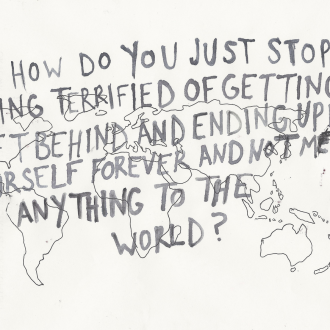 HOW DO YOU JUST STOP
ING TERRIFIED OF GETTING
FT BEHIND AND ENDING UP
URSELF FOREVER AND NOT ME
ANYTHING TO THE
WORLD?